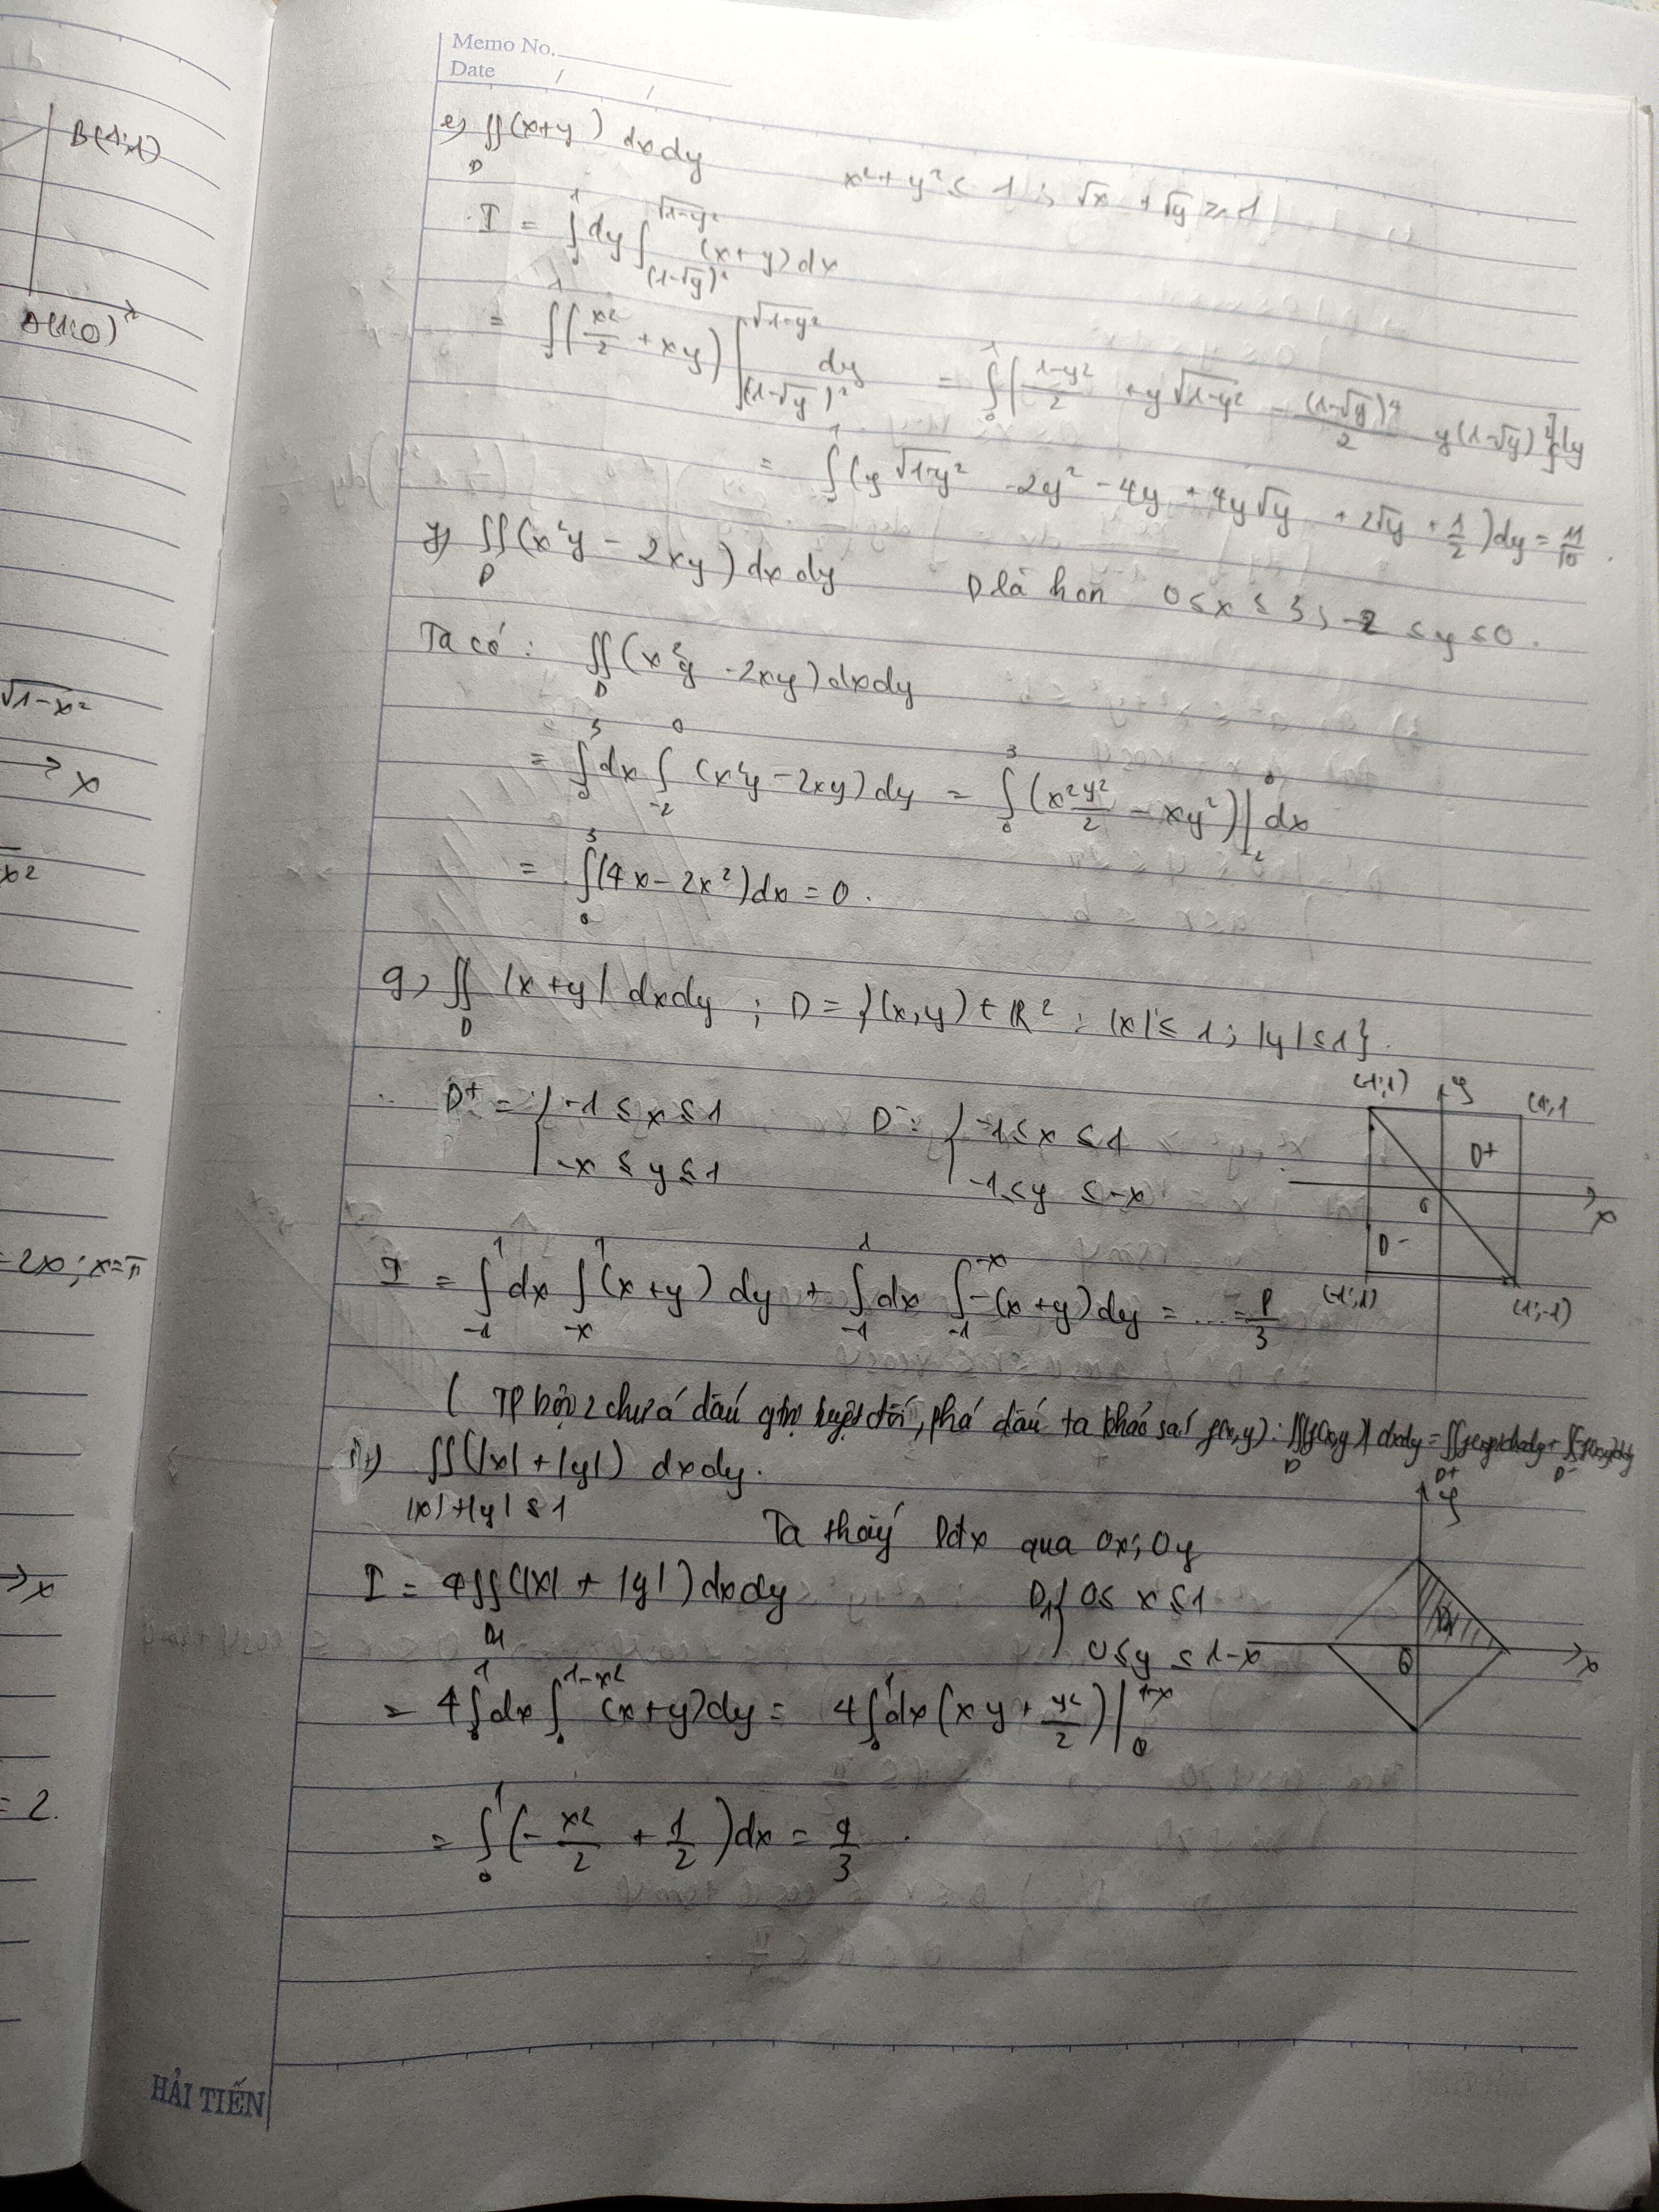 B(1;1)
A(1;0)
√1-x²
→ x
x²
= 2x; x=π
→ x
= 2.
Memo No.
Date / /
e) ∬_D (x+y) dxdy x²+y² ≤ 1; √x + √y ≥ 1
I = ∫_0^1 dy ∫_{(1-√y)²}^{√1-y²} (x+y)dx
= ∫_0^1 (x²/2 + xy) |_{(1-√y)²}^{√1-y²} dy = ∫_0^1 [1-y²/2 + y√1-y² - (1-√y)⁴/2 - y(1-√y)²]dy
= ∫_0^1 (y√1-y² - 2y² - 4y + 4y√y + 2√y + 1/2)dy = 11/10.
y) ∬_D (x²y - 2xy) dx dy D là hcn 0 ≤ x ≤ 3; -2 ≤ y ≤ 0.
Ta có: ∬_D (x²y - 2xy) dxdy
= ∫_0^3 dx ∫_{-2}^0 (x²y - 2xy) dy = ∫_0^3 (x² y²/2 - xy²)|_{-2}^0 dx
= ∫_0^3 (4x - 2x²)dx = 0.
g) ∬_D |x+y| dxdy; D = {(x,y) ∈ R² : |x| ≤ 1; |y| ≤ 1}.
D⁺ = { -1 ≤ x ≤ 1 D⁻ = { -1 ≤ x ≤ 1
-x ≤ y ≤ 1 -1 ≤ y ≤ -x
(-1;1) y (1;1
D+
0 x
D-
(-1;1) (1;-1)
I = ∫_{-1}^1 dx ∫_{-x}^1 (x+y) dy + ∫_{-1}^1 dx ∫_{-1}^{-x} -(x+y)dy = ... = 8/3
( TP bội 2 chứa dấu gtrị tuyệt đối, phá dấu ta khảo sát f(x,y): ∬_D |f(x,y)| dxdy = ∬_{D+} f(x,y)dxdy + ∬_{D-} -f(x,y)dxdy
∬(|x| + |y|) dxdy.
|x|+|y| ≤ 1
Ta thấy D đx qua Ox; Oy
I = 4∬_{D1} (|x| + |y|) dxdy D1 { 0 ≤ x ≤ 1
0 ≤ y ≤ 1-x
y
D1
0 x
= 4∫_0^1 dx ∫_0^{1-x²} (x+y)dy = 4∫_0^1 dx (xy + y²/2)|_0^{1-x}
= ∫_0^1 (-x²/2 + 1/2)dx = 4/3.
HẢI TIẾN